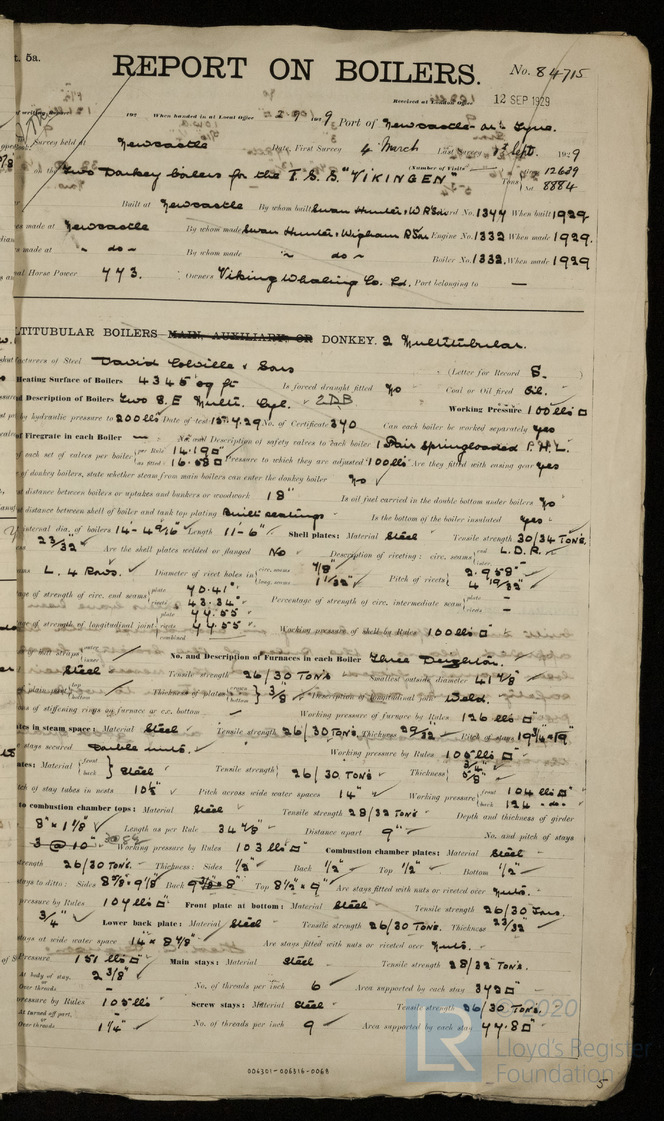 t. 5a.
REPORT ON BOILERS.
No. 84715
Received at London Office
12 SEP 1929
192 When handed in at Local Office 2. 9. 1929 Port of Newcastle-on-Tyne.
Survey held at Newcastle Date, First Survey 4 March Last Survey Sept. 1929
on the Two Donkey boilers for the T.S.S. "VIKINGEN" (Number of Visits Tons 12639 8884
Built at Newcastle By whom built Swan Hunter & W R Son Yard No. 1344 When built 1929
made at Newcastle By whom made Swan Hunter, Wigham R Son Engine No. 1332 When made 1929.
made at ~ do ~ By whom made ~ do ~ Boiler No. 1332. When made 1929
al Horse Power 443. Owners Viking Whaling Co. Ld. Port belonging to —
LTITUBULAR BOILERS MAIN, AUXILIARY, OR DONKEY. 2 Multitubular.
facturers of Steel David Colville & Sons (Letter for Record S. )
Heating Surface of Boilers 4345 sq ft Is forced draught fitted No Coal or Oil fired Oil.
Description of Boilers Two S.E. Multi. Cyl. 2DB Working Pressure 100 lbs □
by hydraulic pressure to 200 lbs Date of test 15.4.29 No. of Certificate 340 Can each boiler be worked separately yes
Firegrate in each Boiler — No. and Description of safety valves to each boiler 1 Pair Springloaded P.H.L.
of each set of valves per boiler per Rule 14.19 □" as fitted 16.58 □" Pressure to which they are adjusted 100 lbs Are they fitted with easing gear yes
of donkey boilers, state whether steam from main boilers can enter the donkey boiler No
distance between boilers or uptakes and bunkers or woodwork 18" Is oil fuel carried in the double bottom under boilers No
distance between shell of boiler and tank top plating Built seatings Is the bottom of the boiler insulated yes
internal dia. of boilers 14'- 4 9/16" Length 11'-6" Shell plates: Material Steel Tensile strength 30/34 TONS.
23/32" Are the shell plates welded or flanged No Description of riveting: circ. seams end L.D.R.
L. 4 Rows. Diameter of rivet holes in circ. seams 7/8" long. seams 11/32" Pitch of rivets 2.958" 4 19/32"
age of strength of circ. end seams plate 70.41 rivets 43.34 Percentage of strength of circ. intermediate seam plate — rivets —
age of strength of longitudinal joint plate 77.55 rivets 77.55 combined Working pressure of shell by Rules 100 lbs □"
No. and Description of Furnaces in each Boiler Three Deighton.
Steel Tensile strength 26/30 TONS Smallest outside diameter 41 7/8"
Thickness of plates crown bottom 3/8" Description of longitudinal joint Weld.
of stiffening rings on furnace or c.c. bottom — Working pressure of furnace by Rules 126 lbs □"
tes in steam space: Material Steel Tensile strength 26/30 TONS. Thickness 29/32" Pitch of stays 19 3/4" x 19"
stays secured Double nuts. Working pressure by Rules 105 lbs □"
ates: Material front back Steel Tensile strength 26/30 TONS Thickness 3/4" 5/8"
tch of stay tubes in nests 10 5/8" Pitch across wide water spaces 14" Working pressure front 104 lbs □" back 124 - do -
to combustion chamber tops: Material Steel Tensile strength 28/32 TONS Depth and thickness of girder
8" x 1 1/8" Length as per Rule 34 7/8" Distance apart 9" No. and pitch of stays
3 @ 10" Working pressure by Rules 103 lbs □" Combustion chamber plates: Material Steel
strength 26/30 TONS. Thickness: Sides 1/2" Back 1/2" Top 1/2" Bottom 1/2"
stays to ditto: Sides 8 5/8" x 9 1/8" Back 9 3/8" x 8" Top 8 1/2" x 9" Are stays fitted with nuts or riveted over Nuts.
pressure by Rules 104 lbs □" Front plate at bottom: Material Steel Tensile strength 26/30 Tons.
3/4" Lower back plate: Material Steel Tensile strength 26/30 TONS. Thickness 23/32"
stays at wide water space 14" x 8 7/8" Are stays fitted with nuts or riveted over Nuts.
Pressure 151 lbs □" Main stays: Material Steel Tensile strength 28/32 TONS.
At body of stay, or Over threads 2 3/8" No. of threads per inch 6 Area supported by each stay 342 □"
pressure by Rules 105 lbs Screw stays: Material Steel Tensile strength 26/30 TONS.
At turned off part, or Over threads 1 1/4" No. of threads per inch 9 Area supported by each stay 77.8 □"
© 2020
LR
Lloyd's Register
Foundation
006301-006316-0068
5